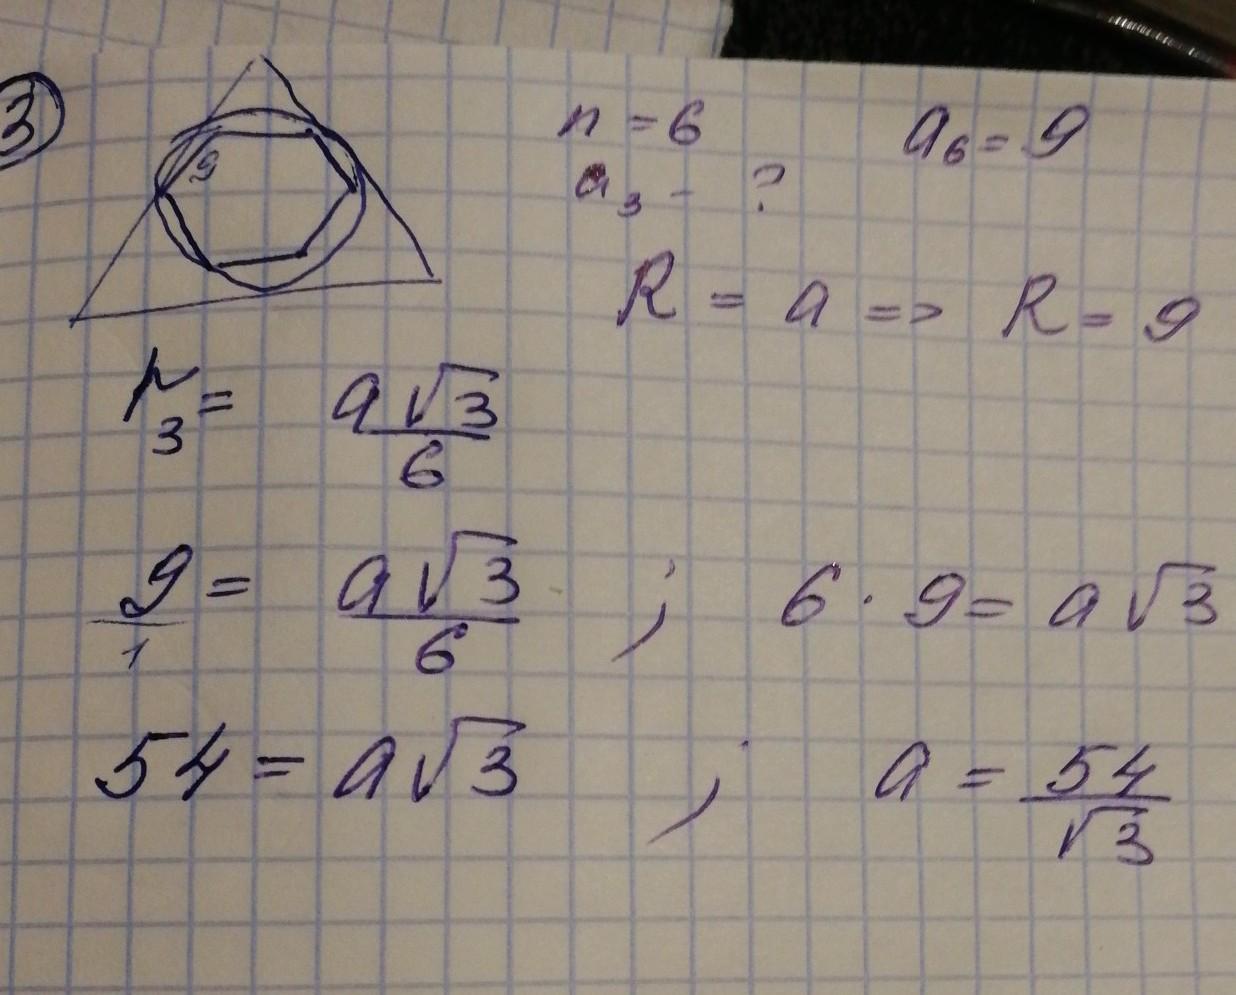 3
9
n = 6 a₆ = 9
a₃ - ?
R = a => R = 9
r₃ = a√3/6
9/1 = a√3/6 ; 6 · 9 = a√3
54 = a√3 ; a = 54/√3